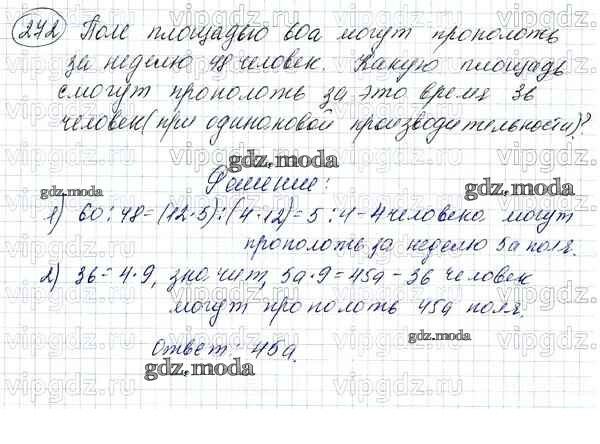 272 Поле площадью 60а могут прополоть
за неделю 48 человек. Какую площадь
смогут прополоть за это время 36
человек (при одинаковой производительности)?
gdz.moda
Решение:
gdz.moda gdz.moda
1) 60:48=(12·5):(4·12)=5:4-4 человека могут
прополоть за неделю 5а поля.
2) 36=4·9, значит, 5а·9=45а-36 человек
могут прополоть 45а поля.
gdz.moda
Ответ: 45а.
gdz.moda